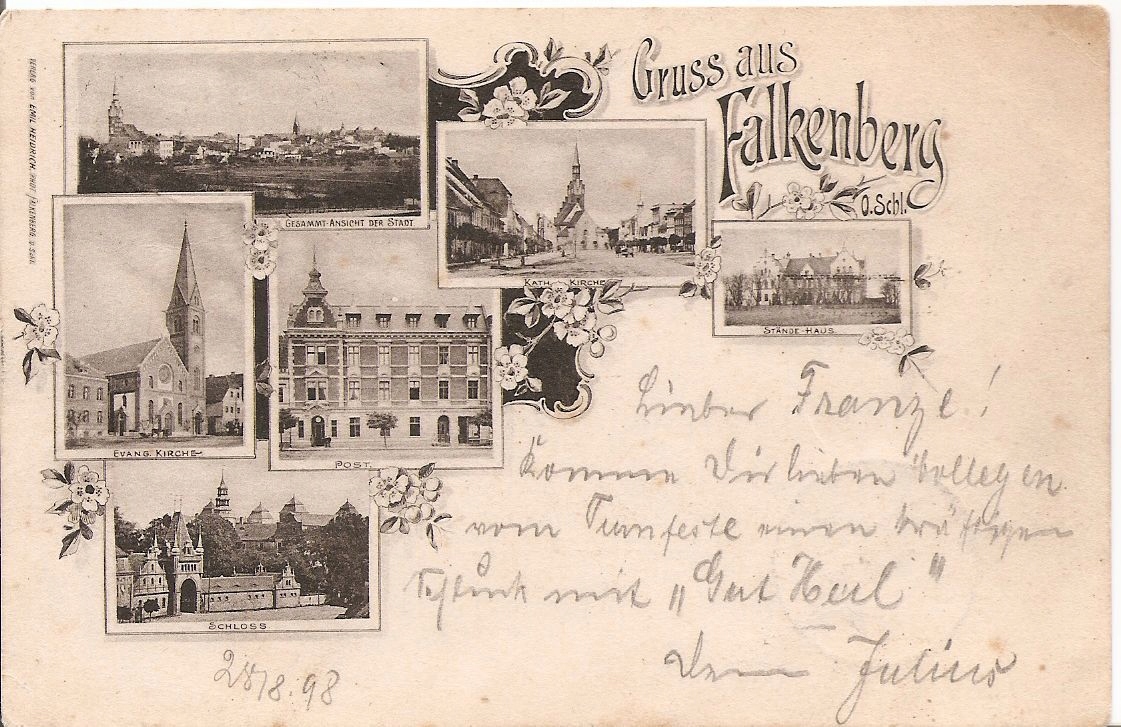 VERLAG von EMIL HEIDRICH, PHOT. FALKENBERG O. SCHL.
Gruss aus
Falkenberg
O. Schl.
GESAMMT-ANSICHT DER STADT.
KATH. KIRCHE
STÄNDE-HAUS.
EVANG. KIRCHE
POST.
SCHLOSS.
Lieber Franze!
Komme Dir lieben Collegen
vom Turnfeste einen kräftigen
Schluck mit „Gut Heil"
Dein Julius
28/8. 98